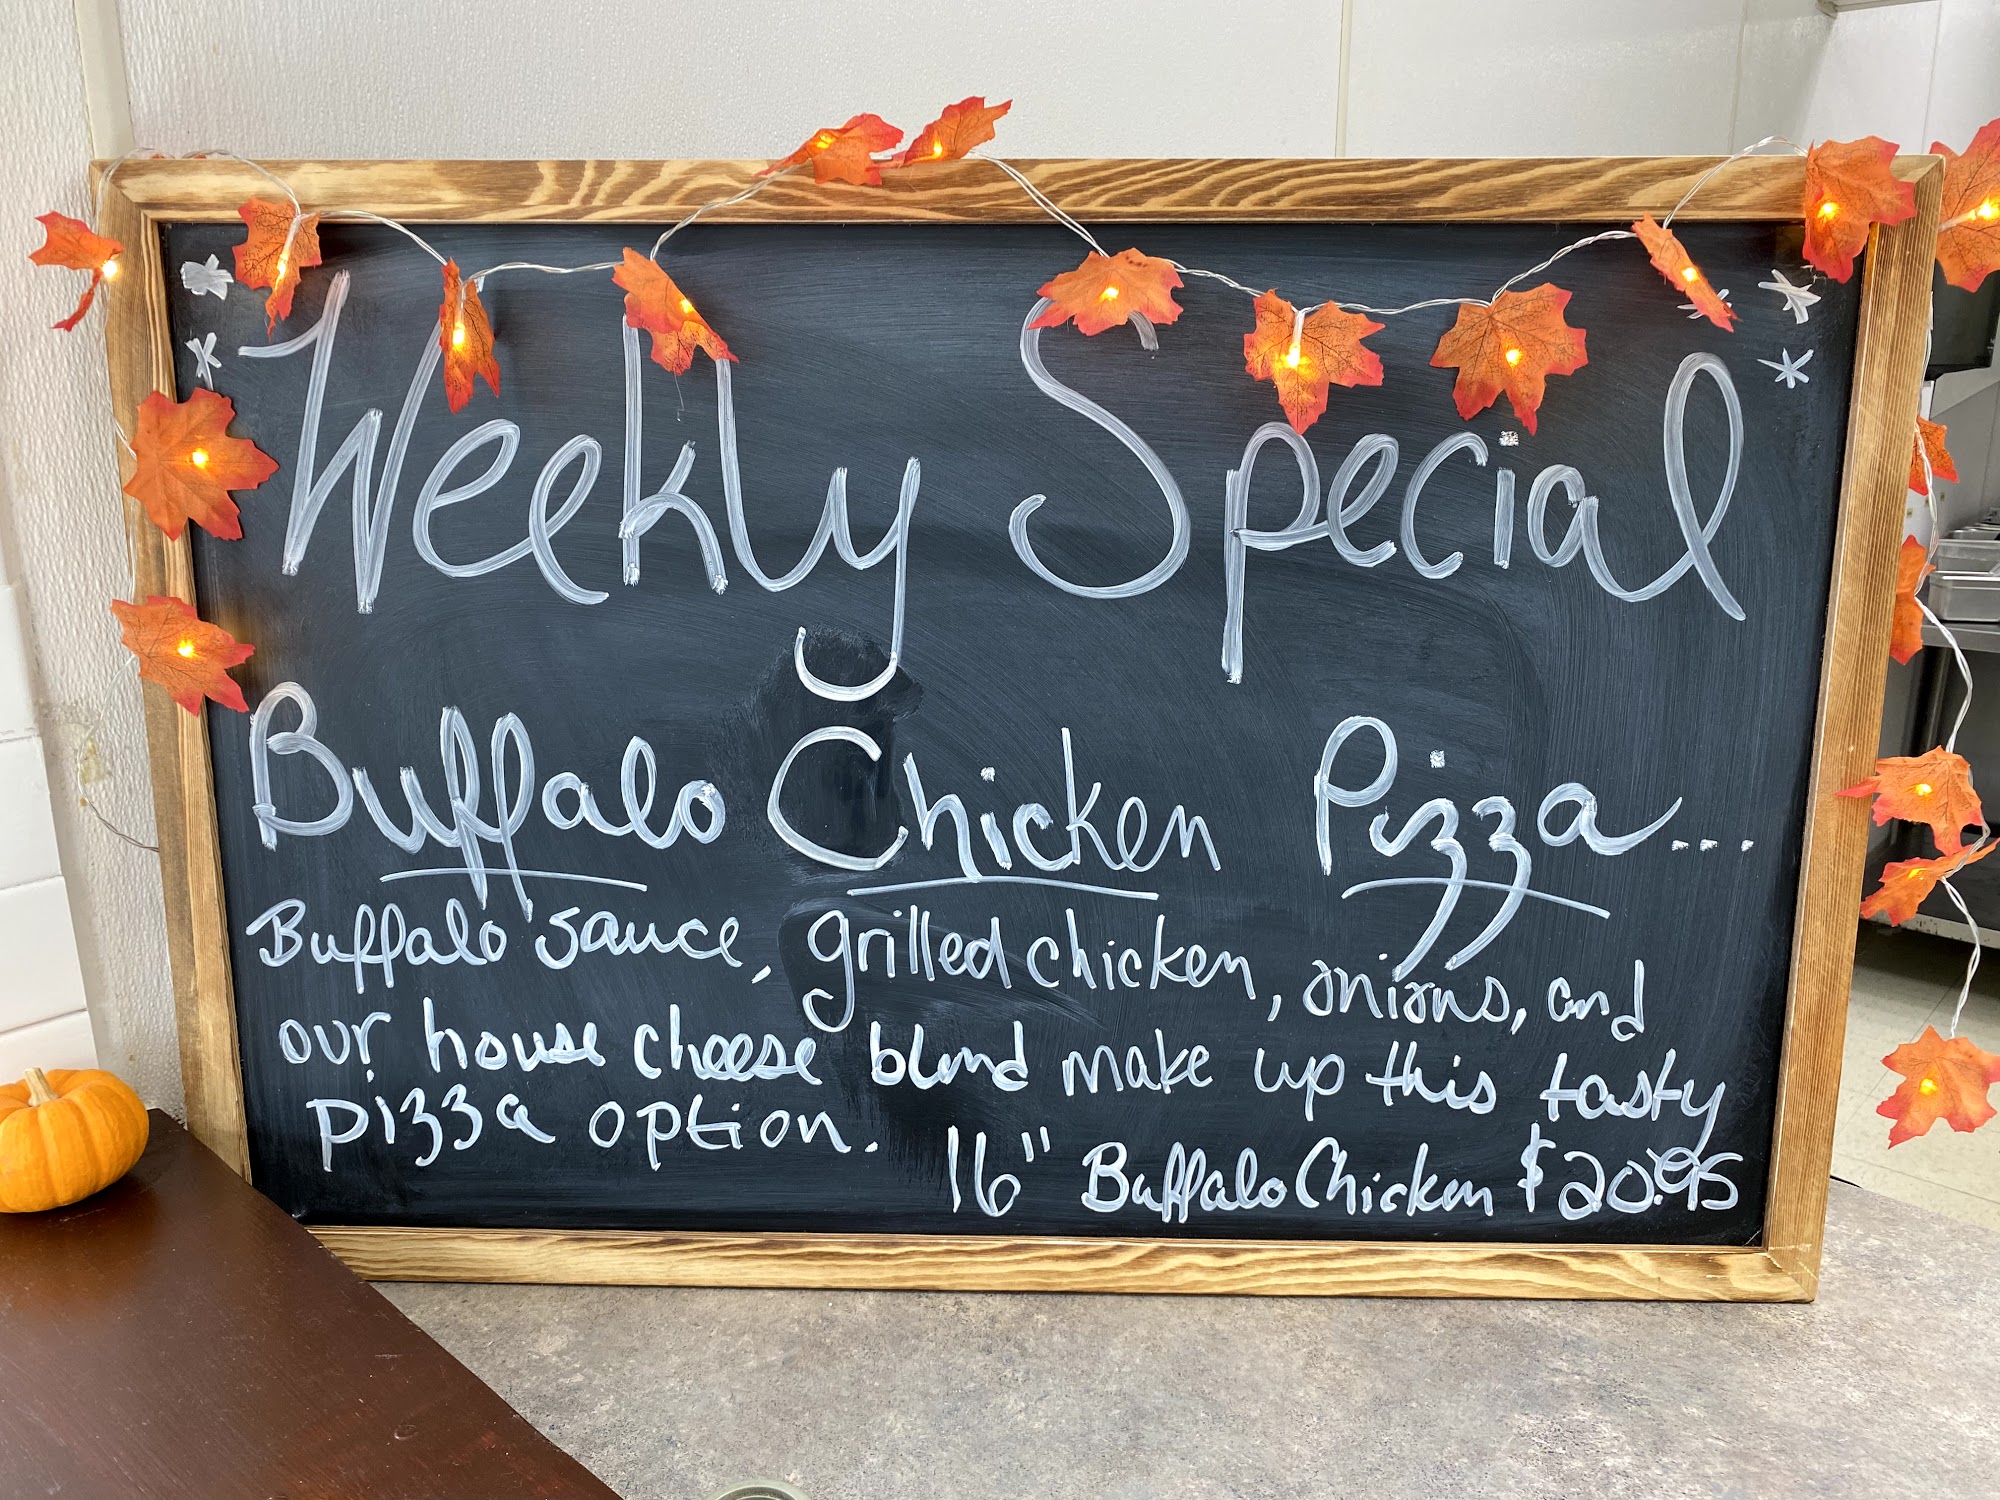 Weekly Special
Buffalo Chicken Pizza...
Buffalo sauce, grilled chicken, onions, and
our house cheese blend make up this tasty
pizza option.
16" Buffalo Chicken $20.95